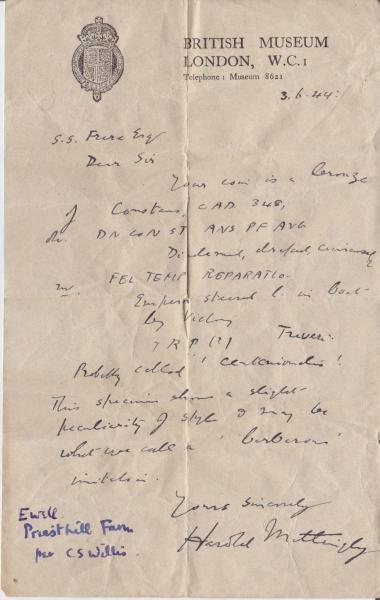 BRITISH MUSEUM
LONDON, W.C.1
Telephone: Museum 8621
3.6.44.
S.S. Frere Esq
Dear Sir
Your coin is a bronze
of Constans, C AD 348,
obv. DN CONST ANS PF AVG
Diademed, draped, cuirassed
rev. FEL TEMP REPARATIO.
Emperor steered l. in boat
by Victory
TRP Treveri.
Probably called 'centenionalis'!
This specimen shows a slight
peculiarity of style & may be
what we call a 'barbarous'
imitation.
Yours sincerely
Harold Mattingly
Ewell
Priesthill Farm
per C.S. Willis.